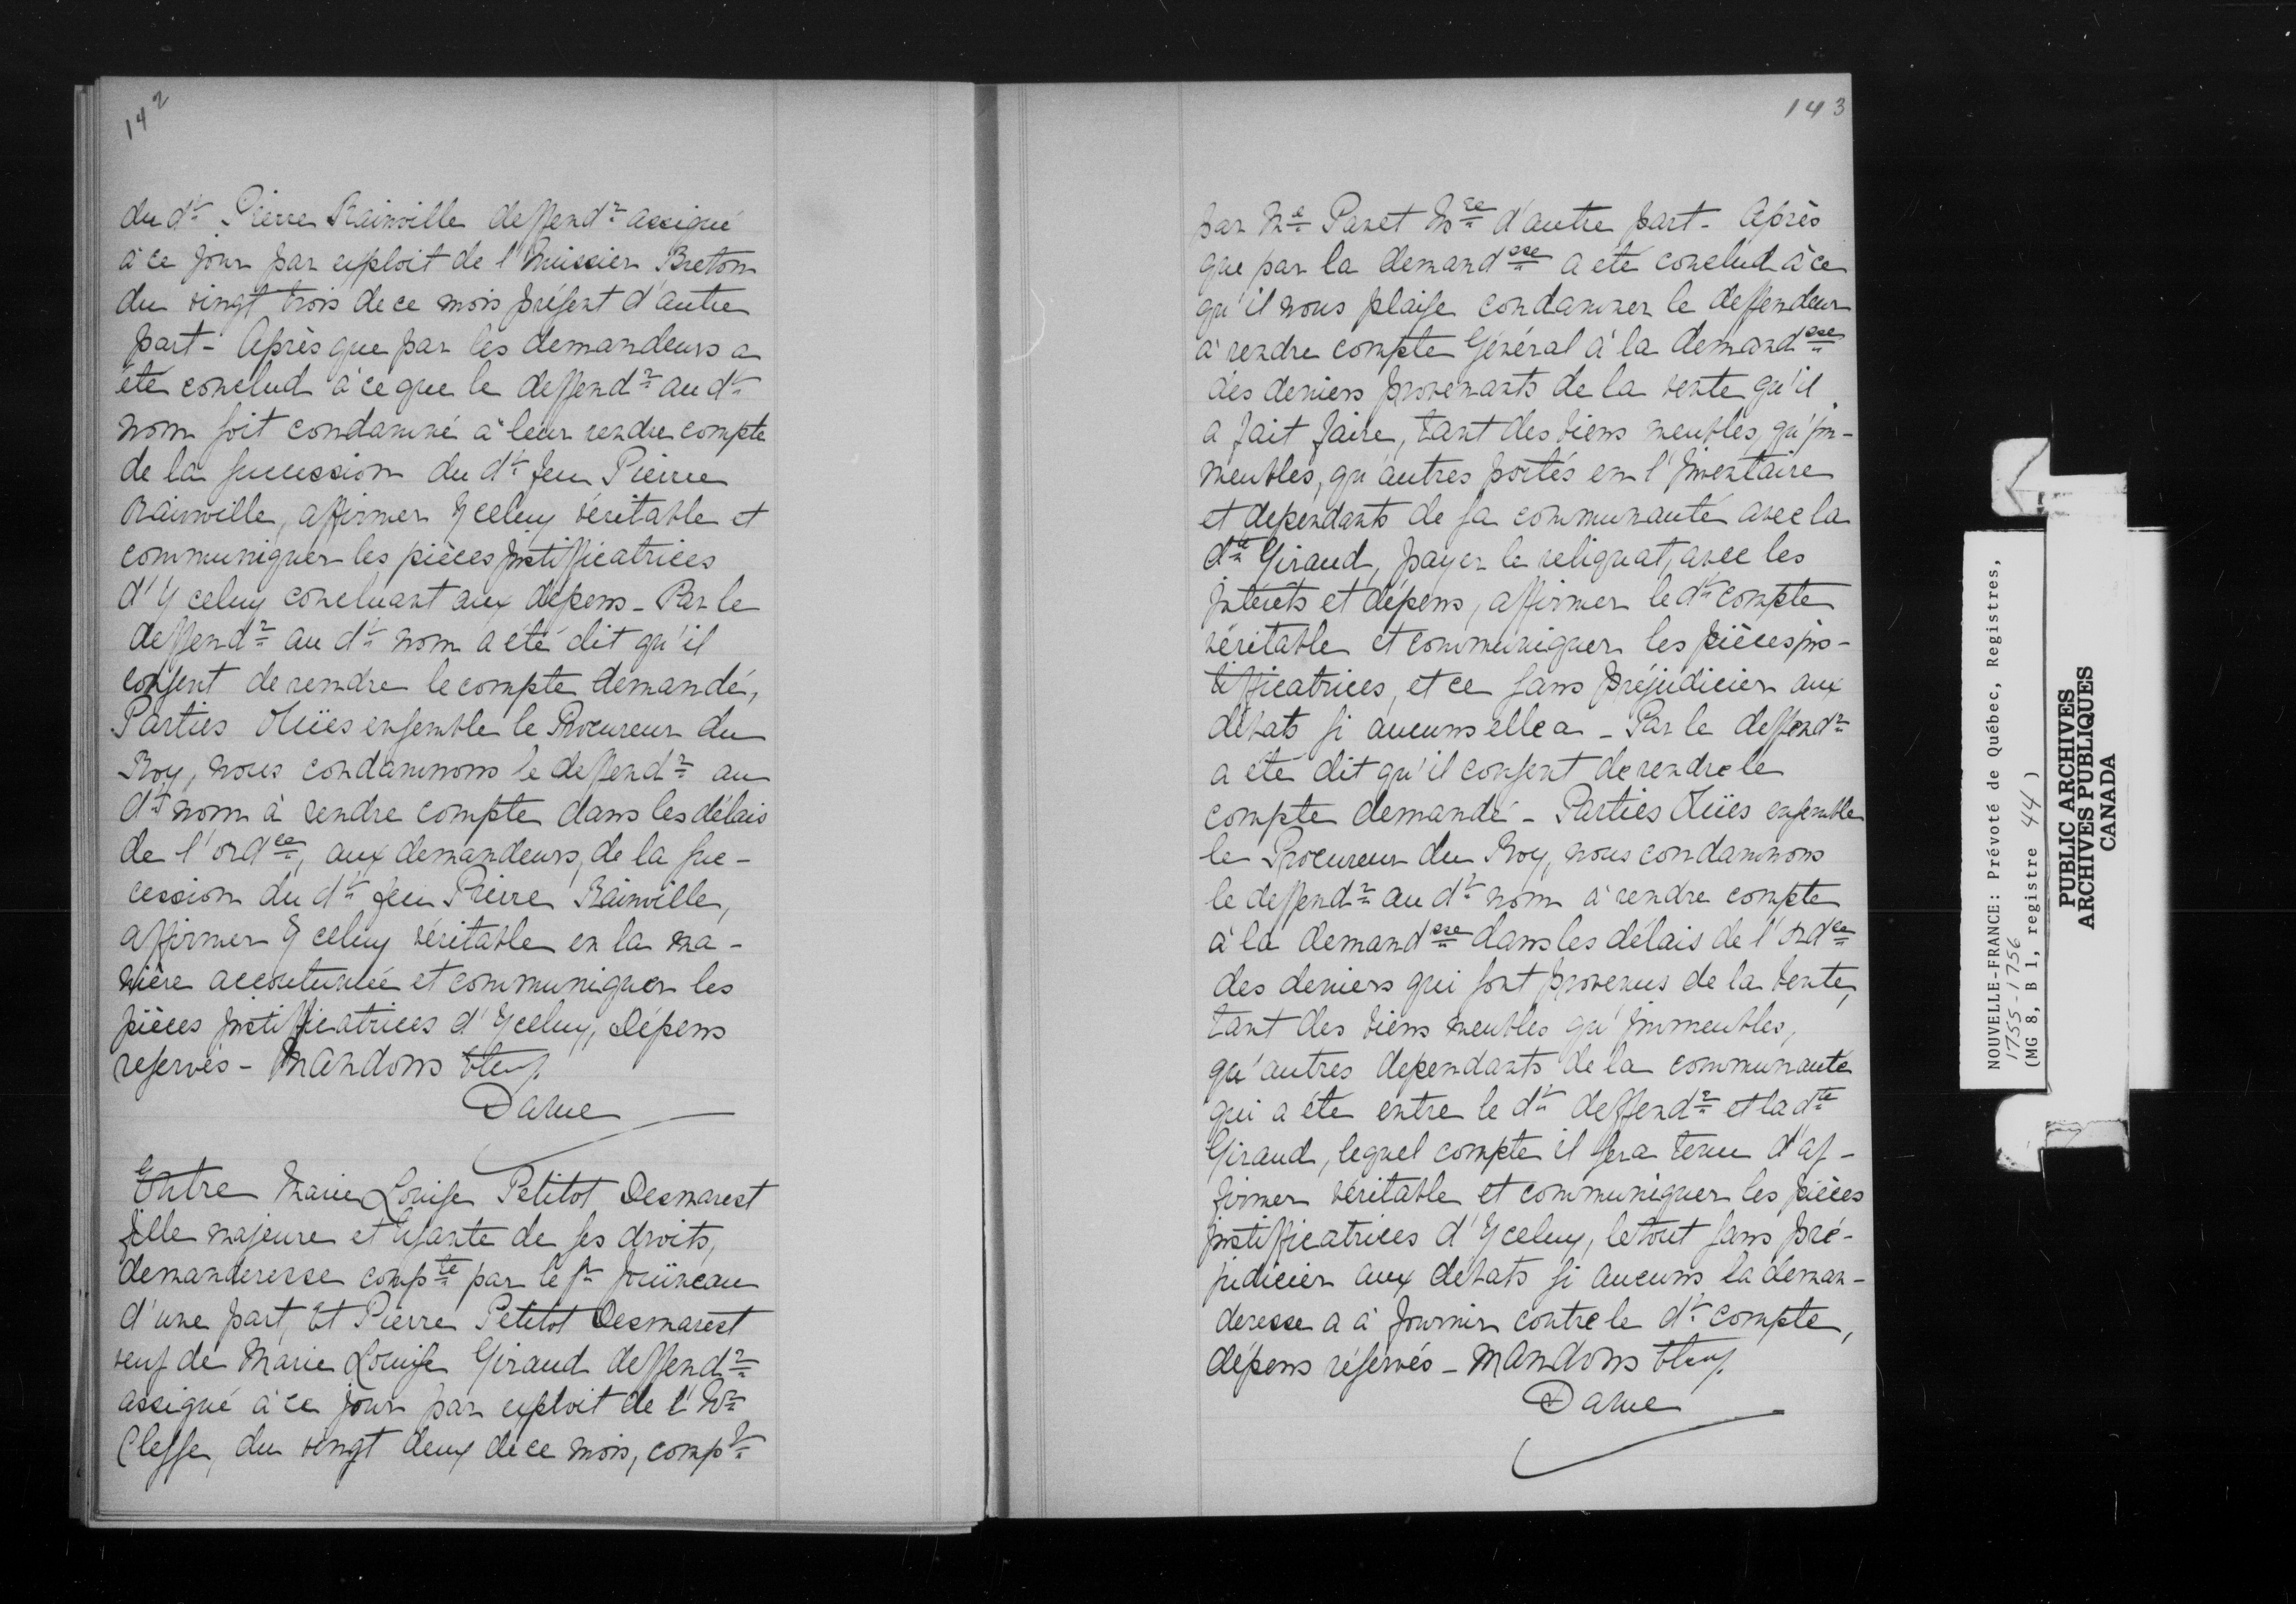 142
du dt Pierre Rainville deffendr assigné
à ce jour par exploit de l'huissier Breton
du vingt trois de ce mois présent d'autre
part - Après que par les demandeurs a
été conclud à ce que le deffendr au dt
nom soit condamné à leur rendre compte
de la succession du dt feu Pierre
Rainville, affirmer Yceluy véritable et
communiquer les pièces justifficatrices
d'Yceluy concluant aux dépens - Par le
deffendr au dt nom a été dit qu'il
consent de rendre le compte demandé,
Parties Oüies ensemble le Procureur du
Roy, nous condamnons le deffendr au
dt nom à rendre compte dans les délais
de l'ordce, aux demandeurs, de la suc-
cession du dt feu Pierre Rainville,
affirmer Yceluy véritable en la ma-
nière accoutumée et communiquer les
pièces justifficatrices d'Yceluy, Dépens
reservés - Mandons
Daine
Entre Marie Louise Petitot Desmarest
fille majeure et Usante de ses droits,
demanderesse compte par le sr Joüineau
d'une part, Et Pierre Petitot Desmarest
veuf de Marie Louise Giraud deffendr
assigné à ce jour par exploit de l'hr
Clesse, du vingt deux de ce mois, compt
143
par Me Panet Nre d'autre part - Après
que par la demandsse a eté conclud à ce
qu'il nous plaise condamner le deffendeur
à rendre compte Général à la demandsse
des deniers provenants de la vente qu'il
a fait faire, tant des biens meubles, qu'im-
meubles, qu'autres portés en l'Inventaire
et dependants de sa communauté avec la
dte Giraud, payer le reliquat, avec les
jntérets et dépens, affirmer le dt compte
véritable et communiquer les pièces jus-
tifficatrices, et ce sans préjudicier aux
débats si aucuns elle a - Par le deffendr
a eté dit qu'il consent de rendre le
compte demandé - Parties Oüies ensemble
le Procureur du Roy, nous condamnons
le deffendr au dt nom à rendre compte
à la demandsse dans les délais de l'ordce
des deniers qui sont provenus de la vente,
tant des biens meubles qu'immeubles,
qu'autres dependants de la communauté
qui a été entre le dt deffendr et la dte
Giraud, lequel compte il sera tenu d'af-
firmer véritable et communiquer les pièces
justifficatrices d'Yceluy, le tout sans pré-
judicier aux débats si aucuns la deman-
deresse a à fournir contre le dt compte,
dépens réservés - Mandons
Daine
NOUVELLE-FRANCE: Prévoté de Québec, Registres,
1755-1756
(MG 8, B 1, registre 44)
PUBLIC ARCHIVES
ARCHIVES PUBLIQUES
CANADA